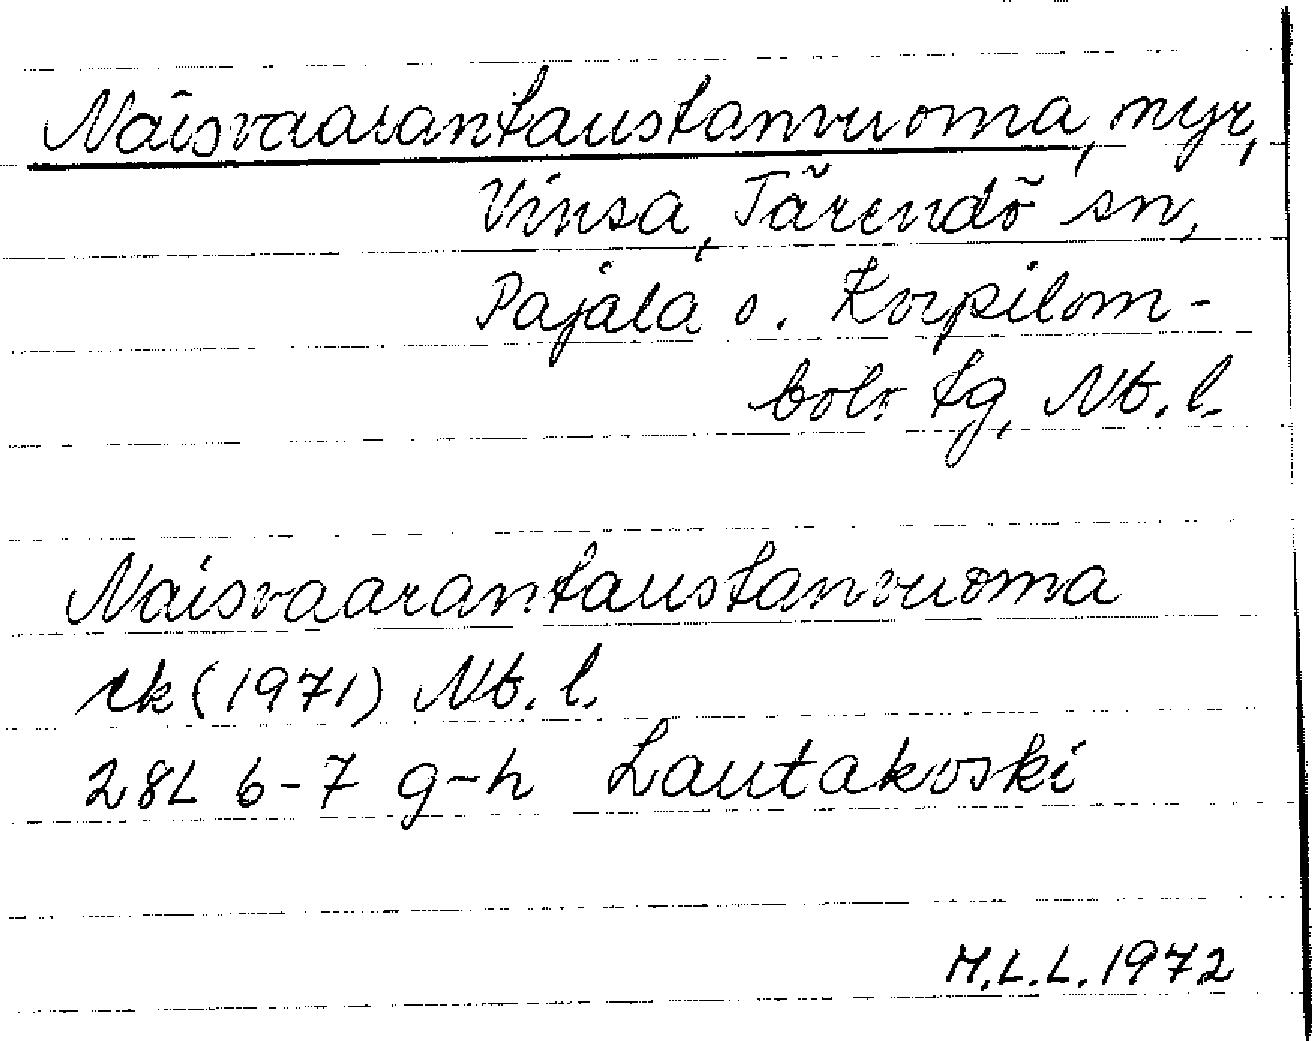 Naisvaarantaustanvuoma, myr,
Vinsa, Tärendö sn,
Pajala o. Korpilom-
bolo tg, Nb. l.
Naisvaarantaustanvuoma
rk (1971) Nb. l.
28L 6-7 g-h Lautakoski
M.L.L. 1972